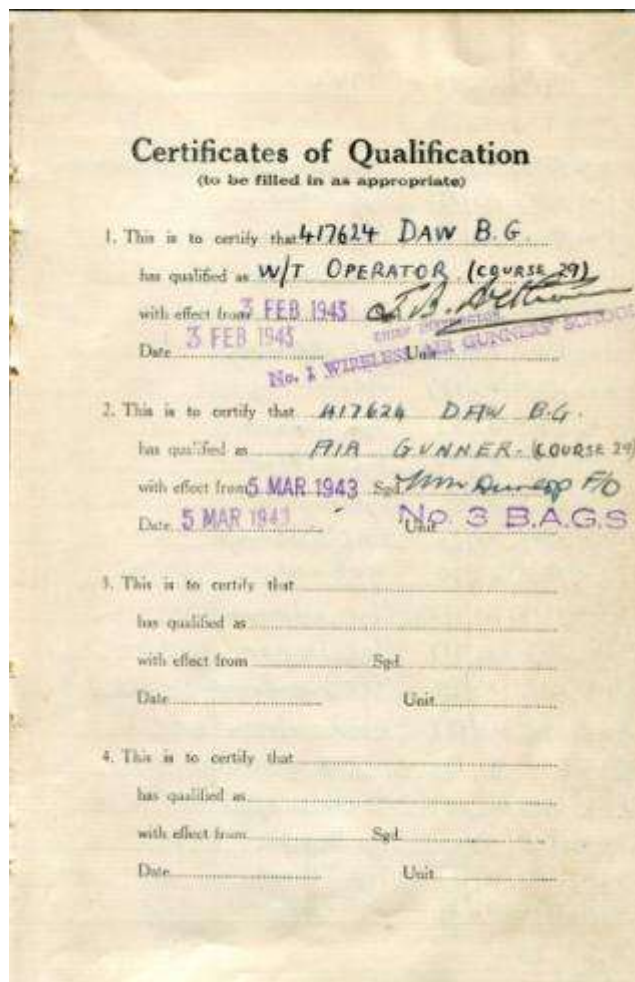 Certificates of Qualification
(to be filled in as appropriate)
1. This is to certify that 417624 DAW B.G.
has qualified as W/T OPERATOR (COURSE 29)
with effect from 3 FEB 1943 J.B.
CHIEF INSTRUCTOR
Date 3 FEB 1943 Unit
No. 1 WIRELESS AIR GUNNERS' SCHOOL
2. This is to certify that 417624 DAW B.G.
has qualified as AIR GUNNER. (COURSE 29)
with effect from 5 MAR 1943 Sgd. Wm Dunlop F/O
Date 5 MAR 1943 Unit No. 3 B.A.G.S
3. This is to certify that
has qualified as
with effect from Sgd.
Date Unit
4. This is to certify that
has qualified as
with effect from Sgd.
Date Unit